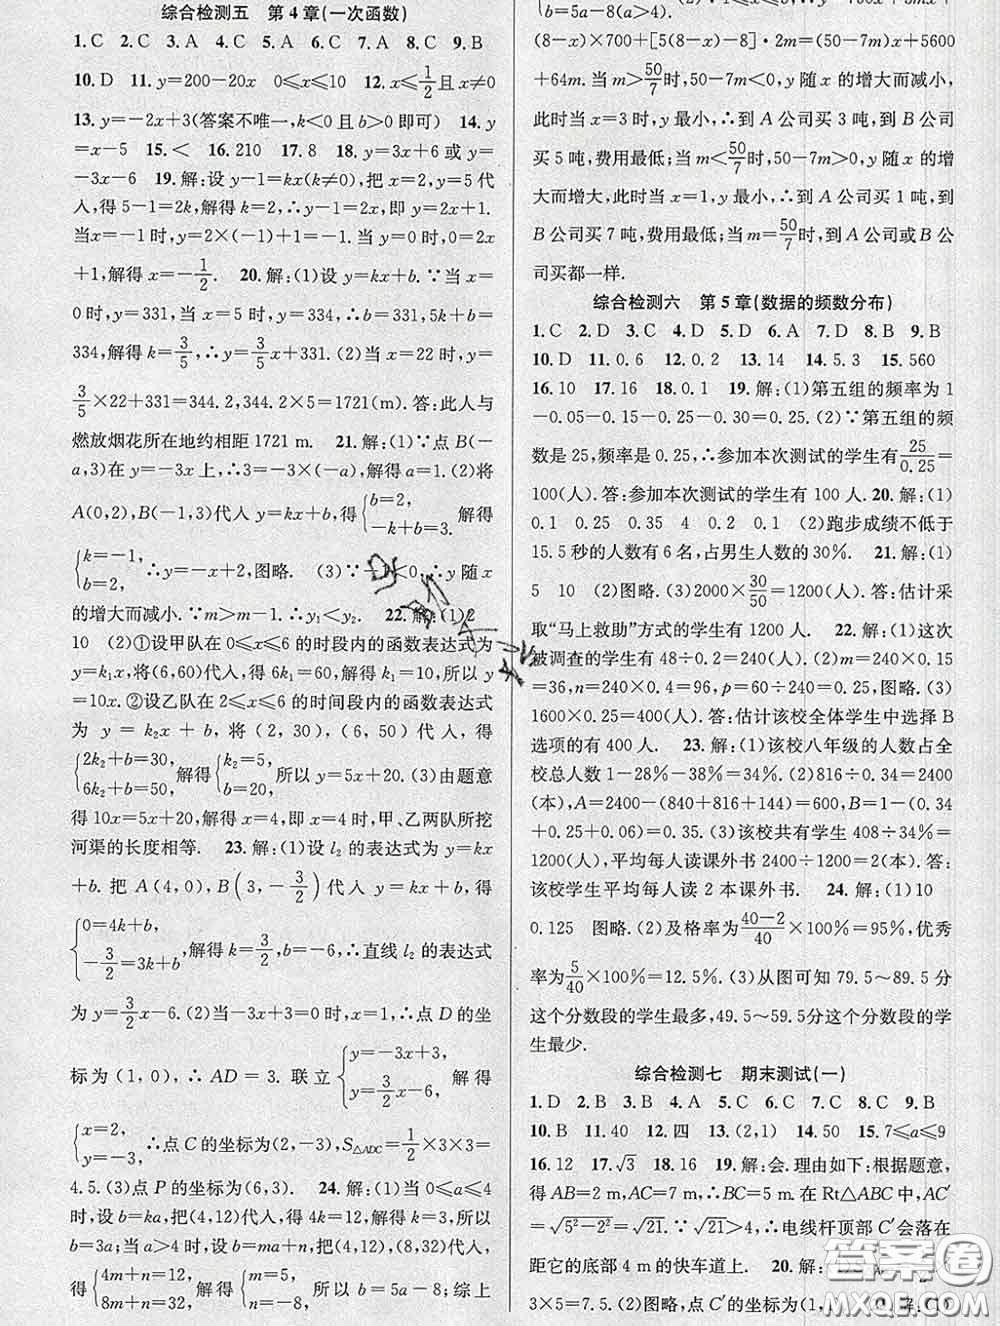 综合检测五　第4章(一次函数)
1. C　2. C　3. A　4. C　5. A　6. C　7. A　8. C　9. B
10. D　11. y=200-20x　0≤x≤10　12. x≤1/2且x≠0
13. y=-2x+3(答案不唯一,k<0且b>0即可)　14. y
=x-5　15. <　16. 210　17. 8　18. y=3x+6或y=
-3x-6　19. 解:设y-1=kx(k≠0),把x=2,y=5代
入,得5-1=2k,解得k=2,∴y-1=2x,即y=2x+1.
当x=-1时,y=2×(-1)+1=-1. 当y=0时,0=2x
+1,解得x=-1/2.　20. 解:(1)设y=kx+b. ∵当x=
0时,y=331,当x=5时,y=334,∴b=331,5k+b=
334,解得k=3/5,∴y=3/5x+331. (2)当x=22时,y=
3/5×22+331=344.2,344.2×5=1721(m). 答:此人与
燃放烟花所在地约相距1721 m.　21. 解:(1)∵点B(-
a,3)在y=-3x上,∴3=-3×(-a),解得a=1. (2)将
A(0,2),B(-1,3)代入y=kx+b,得{b=2, -k+b=3. 解得
{k=-1, b=2, ∴y=-x+2,图略.　(3)∵-1<0,∴y随x
的增大而减小. ∵m>m-1. ∴y₁<y₂.　22. 解:(1)2
10　(2)①设甲队在0≤x≤6的时段内的函数表达式为
y=k₁x,将(6,60)代入,得6k₁=60,解得k₁=10,所以y=
10x. ②设乙队在2≤x≤6的时间段内的函数表达式
为y=k₂x+b,将(2,30),(6,50)代入,得
{2k₂+b=30, 6k₂+b=50, 解得{k₂=5, b=20, 所以y=5x+20. (3)由题意
得10x=5x+20,解得x=4,即x=4时,甲、乙两队所挖
河渠的长度相等.　23. 解:(1)设l₂的表达式为y=kx
+b. 把A(4,0),B(3,-3/2)代入y=kx+b,得
{0=4k+b, -3/2=3k+b, 解得k=3/2,b=-6,∴直线l₂的表达式
为y=3/2x-6. (2)当-3x+3=0时,x=1,∴点D的坐
标为(1,0),∴AD=3. 联立{y=-3x+3, y=3/2x-6, 解得
{x=2, y=-3, ∴点C的坐标为(2,-3),S△ADC=1/2×3×3=
4.5. (3)点P的坐标为(6,3).　24. 解:(1)当0≤a≤4
时,设b=ka,把(4,12)代入,得4k=12,解得k=3,所以
b=3a;当a>4时,设b=ma+n,把(4,12),(8,32)代入,
得{4m+n=12, 8m+n=32, 解得{m=5, n=-8, 所以b=5a-8;综上
b=5a-8(a>4).
(8-x)×700+[5(8-x)-8]·2m=(50-7m)x+5600
+64m. 当m>50/7时,50-7m<0,y随x的增大而减小,
此时当x=3时,y最小,∴到A公司买3吨,到B公司
买5吨,费用最低;当m<50/7时,50-7m>0,y随x的增
大而增大,此时当x=1时,y最小,∴到A公司买1吨,到
B公司买7吨,费用最低;当m=50/7时,到A公司或B公
司买都一样.
综合检测六　第5章(数据的频数分布)
1. C　2. D　3. C　4. D　5. D　6. A　7. D　8. B　9. B
10. D　11. 0.6　12. 0.2　13. 14　14. 5.3　15. 560
16. 10　17. 16　18. 0.1　19. 解:(1)第五组的频率为1
-0.05-0.15-0.25-0.30=0.25. (2)∵第五组的频
数是25,频率是0.25,∴参加本次测试的学生有25/0.25=
100(人). 答:参加本次测试的学生有100人. 20. 解:(1)
0.1　0.25　0.35　6　4　0.2　0.1　(2)跑步成绩不低于
15.5秒的人数有6名,占男生人数的30%.　21. 解:(1)
5　10　(2)图略. (3)2000×30/50=1200(人). 答:估计采
取“马上救助”方式的学生有1200人.　22. 解:(1)这次
被调查的学生有48÷0.2=240(人). (2)m=240×0.15
=36,n=240×0.4=96,p=60÷240=0.25,图略. (3)
1600×0.25=400(人). 答:估计该校全体学生中选择B
选项的有400人.　23. 解:(1)该校八年级的人数占全
校总人数1-28%-38%=34%. (2)816÷0.34=2400
(本),A=2400-(840+816+144)=600,B=1-(0.34
+0.25+0.06)=0.35. (3)该校共有学生408÷34%=
1200(人),平均每人读课外书2400÷1200=2(本). 答:
该校学生平均每人读2本课外书.　24. 解:(1)10
0.125　图略. (2)及格率为(40-2)/40×100%=95%,优秀
率为5/40×100%=12.5%. (3)从图可知79.5~89.5分
这个分数段的学生最多,49.5~59.5分这个分数段的学
生最少.
综合检测七　期末测试(一)
1. D　2. B　3. B　4. C　5. C　6. C　7. C　8. C　9. B
10. B　11. 40　12. 四　13. (2,1)　14. 50　15. 7≤a≤9
16. 12　17. √3　18. 16　19. 解:会. 理由如下:根据题意,
得AB=2 m,AC=7 m,∴BC=5 m. 在Rt△ABC中,AC′
=√(5²-2²)=√21. ∵√21>4,∴电线杆顶部C′会落在
距它的底部4 m的快车道上.　20. 解:
3×5=7.5. (2)图略,点C′的坐标为(1,
答案圈
MXQE.COM